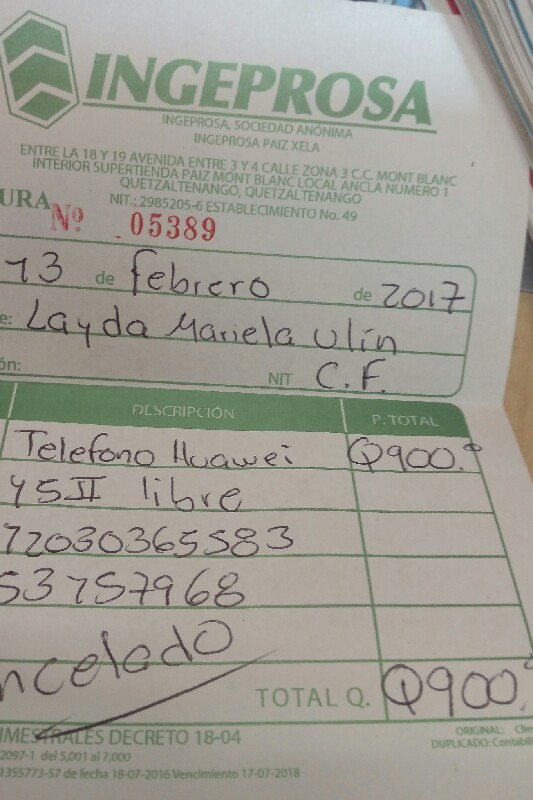 INGEPROSA
INGEPROSA, SOCIEDAD ANÓNIMA
INGEPROSA PAIZ XELA
ENTRE LA 18 Y 19 AVENIDA ENTRE 3 Y 4 CALLE ZONA 3 C.C. MONT BLANC
INTERIOR SUPERTIENDA PAIZ MONT BLANC LOCAL ANCLA NUMERO 1
QUETZALTENANGO, QUETZALTENANGO
NIT.: 2985205-6 ESTABLECIMIENTO No. 49
URA Nº 05389
13 de febrero de 2017
e: Layda Mariela Ulín
ón: NIT C.F.
DESCRIPCIÓN P. TOTAL
Telefono Huawei Q900.º
Y5II libre
72030365583
53757968
ncelado
TOTAL Q. Q900.
IMESTRALES DECRETO 18-04
2097-1 del 5,001 al 7,000
1355773-57 de fecha 18-07-2016 Vencimiento 17-07-2018
ORIGINAL: Clie
DUPLICADO: Contabil